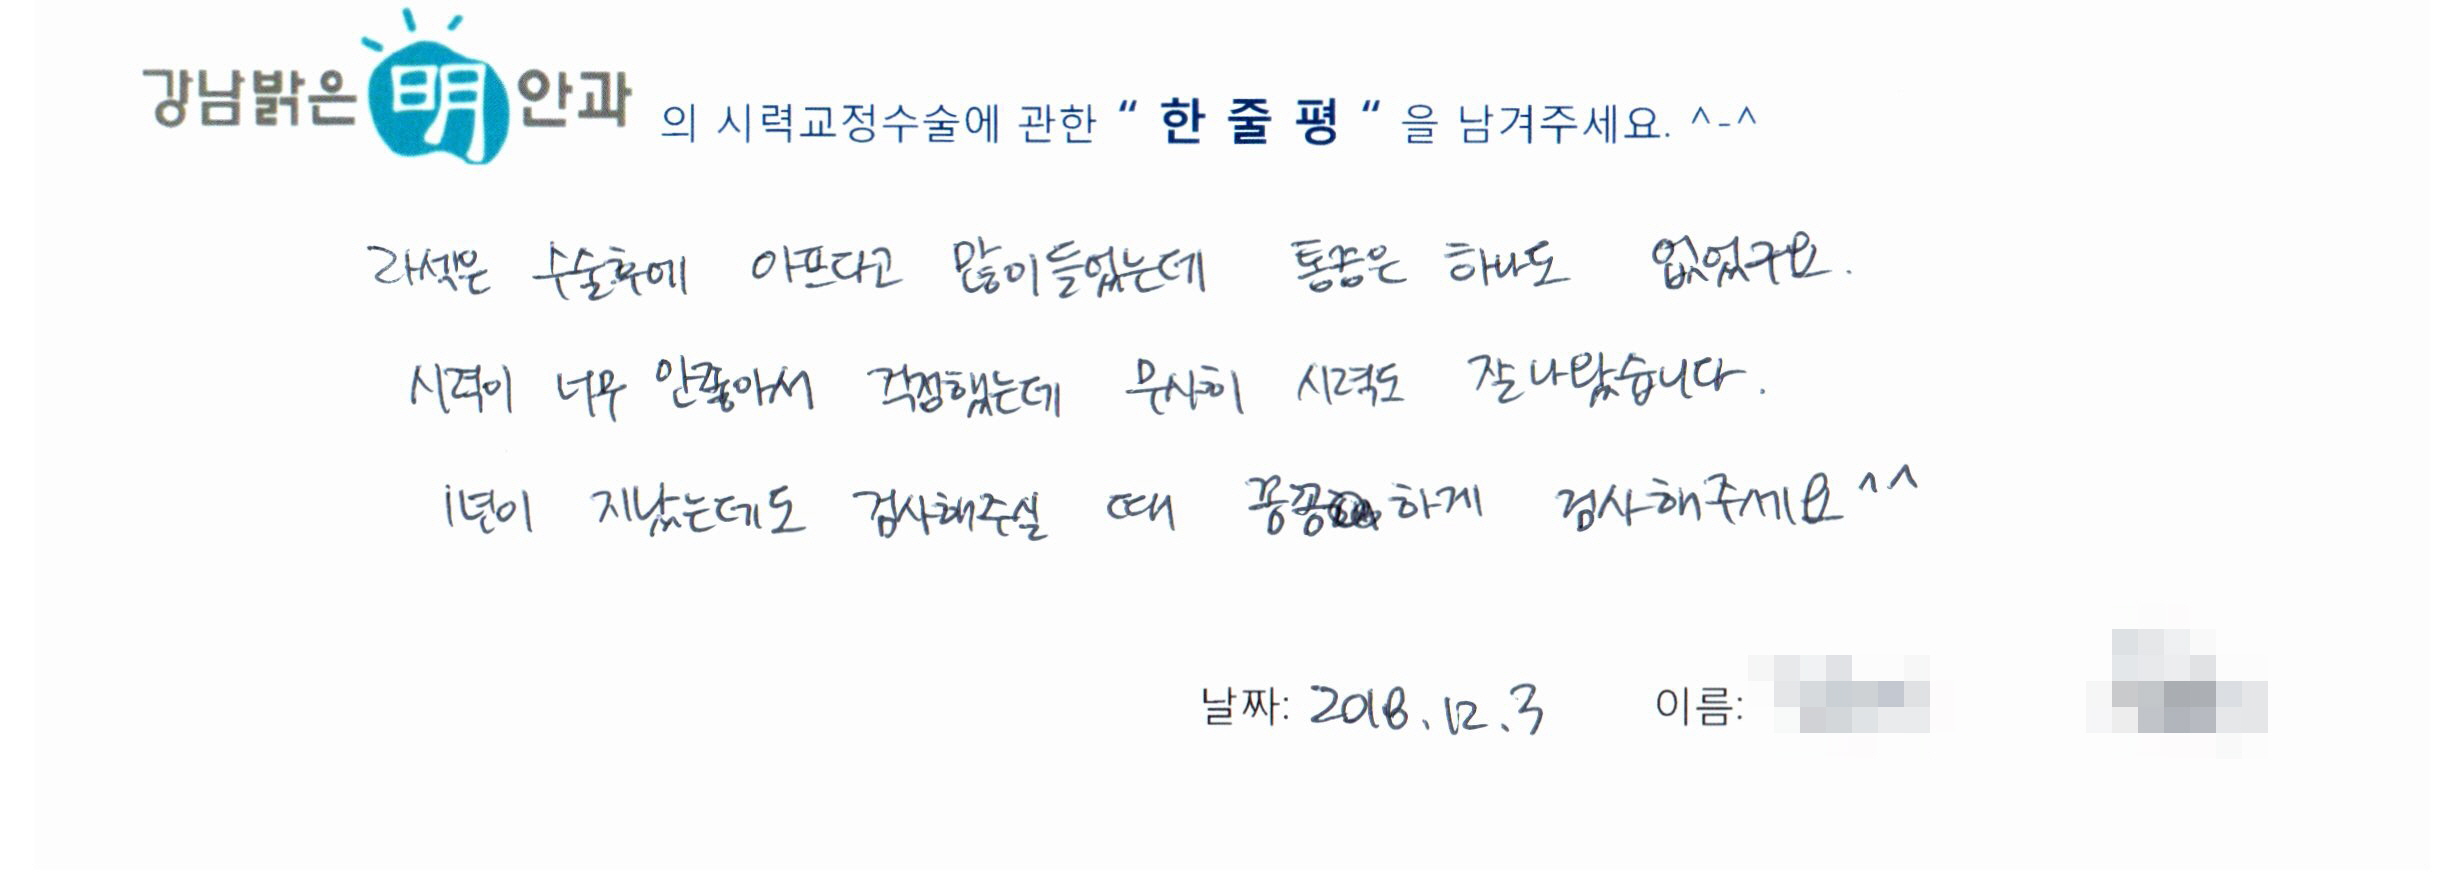 강남밝은 明 안과 의 시력교정수술에 관한 “ 한 줄 평 “ 을 남겨주세요. ^-^
라섹은 수술후에 아프다고 많이들었는데 통증은 하나도 없었구요.
시력이 너무 안좋아서 걱정했는데 무사히 시력도 잘나왔습니다.
1년이 지났는데도 검사해주실 때 꽁꽁하게 검사해주세요^^
날짜: 2018.12.3 이름: